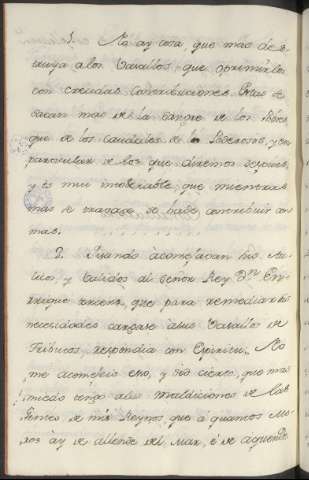 1. No ay cosa, que mas des-
truya a los Vasallos, que oprimirlos
con crecidas Contribuciones. Estas se
sacan mas de la Sangre de los Pobres
que de los Caudales de los Poderosos, y en
particular de los que diremos despues,
y es mui intolerable, que mientras
mas se trabaja se haia de contribuir con
mas.
2. Quando aconsejaban sus
y Validos al Señor Rey Dn. En-
rrique tercero, que para remediar sus
necesidades cargase a sus Vasallos de
Tributos, respondia con Espiritu: No
me aconsejeis eso, y sed ciertos, que mas
miedo tengo a las maldiciones de las
Gentes de mis Reynos, que a quantos Mo-
ros ay de allende del Mar, ó de aquende